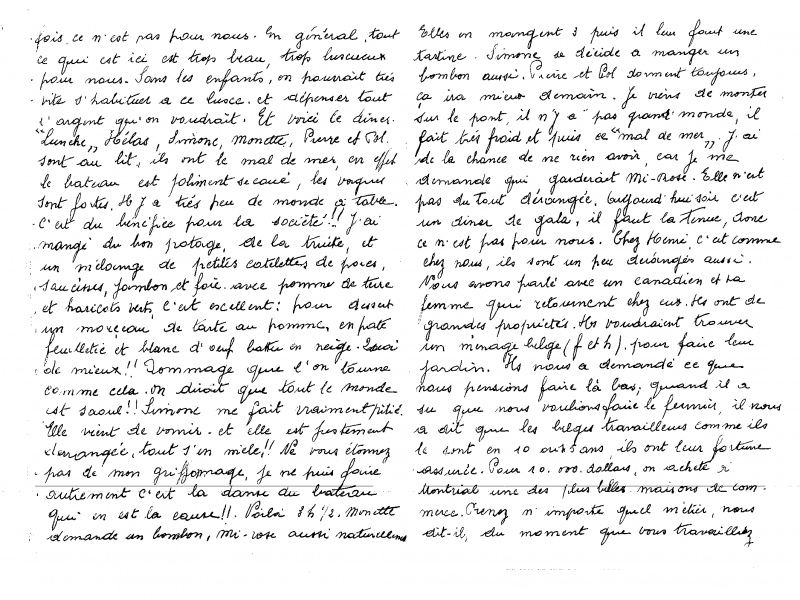 fois, ce n'est pas pour nous. En général, tout
ce qui est ici est trop beau, trop luscueux
pour nous. Sans les enfants, on pourrait très
vite s'habituer a ce lusce. et dépenser tout
l'argent qu'on voudrait. Et voici le diner.
"Lunche,, Hélas, Simone, Monette, Pierre et Pol.
sont au lit, ils ont le mal de mer, en effet
le bateau est joliment secoué, les vagues
sont fortes. Il y a très peu de monde à table.
C'est du bénéfice pour la société!! J'ai
mangé du bon potage, de la truite, et
un mélange de petites cotelettes de porcs,
saucisses, jambon et foie. avec pomme de terre
et haricots verts, c'est excellent: pour dessert
un morceau de tarte au pomme, en paté
feuilletée et blanc d'oeuf battu en neige. Quoi
de mieux!! Dommage que l'on tourne
comme cela. on dirait que tout le monde
est saoul!! Simone me fait vraiment pitié.
Elle vient de vomir. et elle est justement
dérangée, tout s'en mêle,!! Ne vous étonnez
pas de mon griffonnage, je ne puis faire
autrement c'est la danse du bateau
qui en est la cause!!. Voilà 3h 1/2. Monette
demande un bonbon, Mi-rose aussi naturellement
Elles en mangent 3 puis il leur faut une
tartine. Simone, se décide a manger un
bonbon aussi. Pierre et Pol dorment toujours,
ça ira mieux demain. Je viens de monter
sur le pont, il n'y a pas grand monde, il
fait très froid et puis ce "mal de mer,, J'ai
de la chance de ne rien avoir, car je me
demande qui garderait Mi-Rose. Elle n'est
pas du tout dérangée. Aujourd'hui soir c'est
un diner de gala, il faut la tenue, donc
ce n'est pas pour nous. Chez Henri, c'est comme
chez nous, ils sont un peu dérangés aussi.
Nous avons parlé avec un canadien et sa
femme qui retournent chez eux. Ils ont de
grandes propriétés. Ils voudraient trouver
un ménage belge (f et h). pour faire leur
jardin. Ils nous a demandé ce que
nous pensions faire là bas; quand il a
su que nous voulions faire le fermier, il nous
a dit que les belges travailleurs comme ils
le sont en 10 ou 15 ans, ils ont leur fortune
assurée. Pour 10.000 dollars, on achète à
Montréal une des plus belles maisons de com-
merce. Prenez n'importe quel métier, nous
dit-il, du moment que vous travaillez